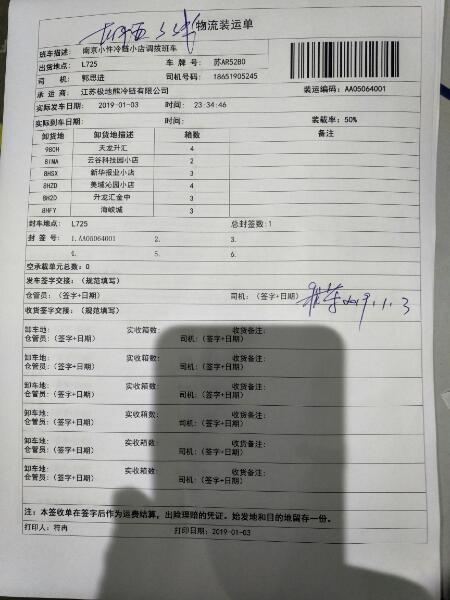 物流装运单
班车描述: 南京小件冷链小店调拨班车
出货地点: L725 车 牌 号: 苏AR52B0
司 机: 郭思进 司机号码: 18651905245
承 运 商: 江苏极地熊冷链有限公司 装运编码: AA05064001
实际发车日期: 2019-01-03 时间: 23:34:46
实际到车日期: 时间: 装载率: 50%
卸货地 卸货地描述 箱数 备注
980H 天龙升汇 4
8INA 云谷科技园小店 2
8HSX 新华报业小店 3
8HZD 美域沁园小店 4
8H2D 升龙汇金中 3
8HFY 海峡城 3
封车地点: L725 总封签数:1
封 签 号: 1.AA05064001 2. 3.
4. 5. 6.
空承载单元总数: 0
发车签字交接: (规范填写)
仓管员: (签字+日期) 司机: (签字+日期) 2019.1.3
收货签字交接: (规范填写)
卸车地: 实收箱数: 收货备注:
仓管员: (签字+日期) 司机: (签字+日期)
卸车地: 实收箱数: 收货备注:
仓管员: (签字+日期) 司机: (签字+日期)
卸车地: 实收箱数: 收货备注:
仓管员: (签字+日期) 司机: (签字+日期)
卸车地: 实收箱数: 收货备注:
仓管员: (签字+日期) 司机: (签字+日期)
卸车地: 实收箱数: 收货备注:
仓管员: (签字+日期) 司机: (签字+日期)
卸车地: 实收箱数: 收货备注:
仓管员: (签字+日期) 司机: (签字+日期)
注: 本签收单在签字后作为运费结算, 出险理赔的凭证。始发地和目的地留存一份。
打印人: 符冉 打印日期: 2019-01-03